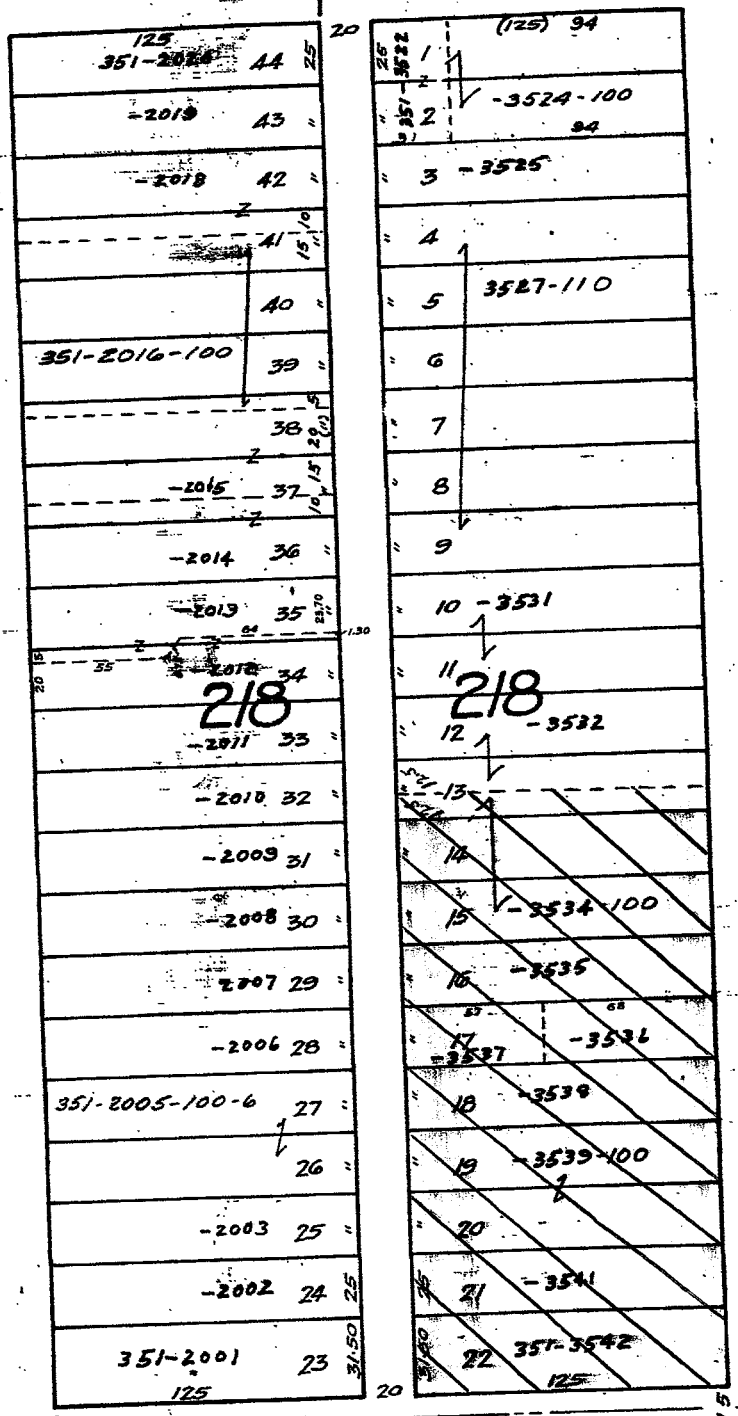 125
351-2024 44 25
-2019 43 "
-2018 42 "
Z 10
41 15 "
40 "
351-2016-100 39 "
5
38 20 (11)
Z 15
-2015 37
10
Z
-2014 36 "
-2013 35 23.70
64 1.30
20 15 55 Z
-2012 34
218
-2011 33 "
-2010 32 "
-2009 31 "
-2008 30 "
2007 29 "
-2006 28 "
351-2005-100-6 27 "
26 "
-2003 25 "
-2002 24 25
351-2001 23 31.50
125
20
20
(125) 94
25 351-3522 1
Z
" 2 -3524-100
94
" 3 -3525
" 4
" 5 3527-110
" 6
" 7
" 8
" 9
" 10 -3531
" 11
218
" 12 -3532
12.5 13
12.5
" 14
" 15 -3534-100
" 16 -3535
57 68
" 17 -3536
-3537
" 18 -3538
" 19 -3539-100
" 20
25 21 -3541
31.50 22 351-3542
125
5